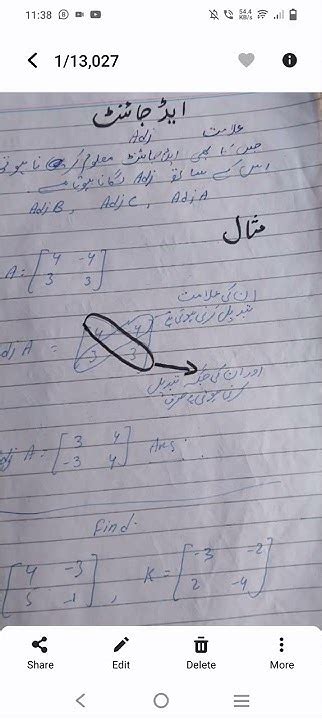 11:38
54.4 KB/s
1/13,027
ایڈجائنٹ
علامت
Adj
جس کا بھی ایڈجائنٹ معلوم کرنا ہو
اس کے ساتھ Adj لگانا ہوتا ہے
Adj B, Adj C, Adj A
مثال
A = [4 -4
3 3]
ان کی علامت
تبدیل کرنی ہوتی ہے
dj A =
4 4
3 3
اور ان کی جگہ تبدیل
کرنی ہوتی ہے صرف
dj A = [3 4
-3 4] Ans:
Find.
[4 -3
5 -1], K = [-3 -2
2 -4]
Share Edit Delete More